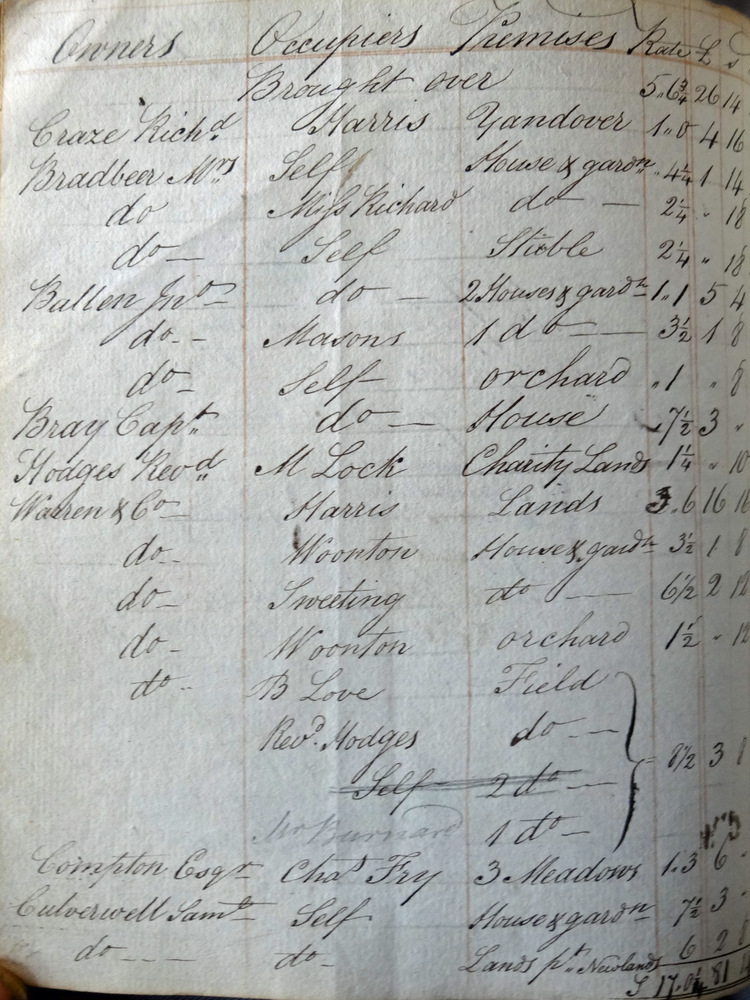 Owners Occupiers Premises Rate £ s
Brought over 5„6¾ 26 14
Craze Richd Harris Yandover 1„0 4 16
Bradbeer Mrs Self House & gardn „4¼ 1 14
do Miss Richard do — 2¼ „ 18
do — Self Stable 2¼ „ 18
Bullen Jno — do — 2 Houses & gardn 1„1 5 4
do - Masons 1 do — 3½ 1 8
do - Self orchard „1 „ 8
Bray Capt do — House 7½ 3 „
Hodges Revd M Lock Charity Lands 1¼ „ 10
Warren & Co Harris Lands 3„6 16 16
do - Woonton House & gardn 3½ 1 8
do - Sweeting do — 6½ 2 12
do - Woonton orchard 1½ „ 12
do - B Love Field
Revd Hodges do —
8½ 3 8
Self 2 do —
Mr Burnard 1 do —
Compton Esqr Chas Fry 3 Meadows 1„3 6 -
Culverwell Saml Self House & gardn 7½ 3 -
do - - - do - Lands pt Newlands 6 2 8
17„0¼ 81